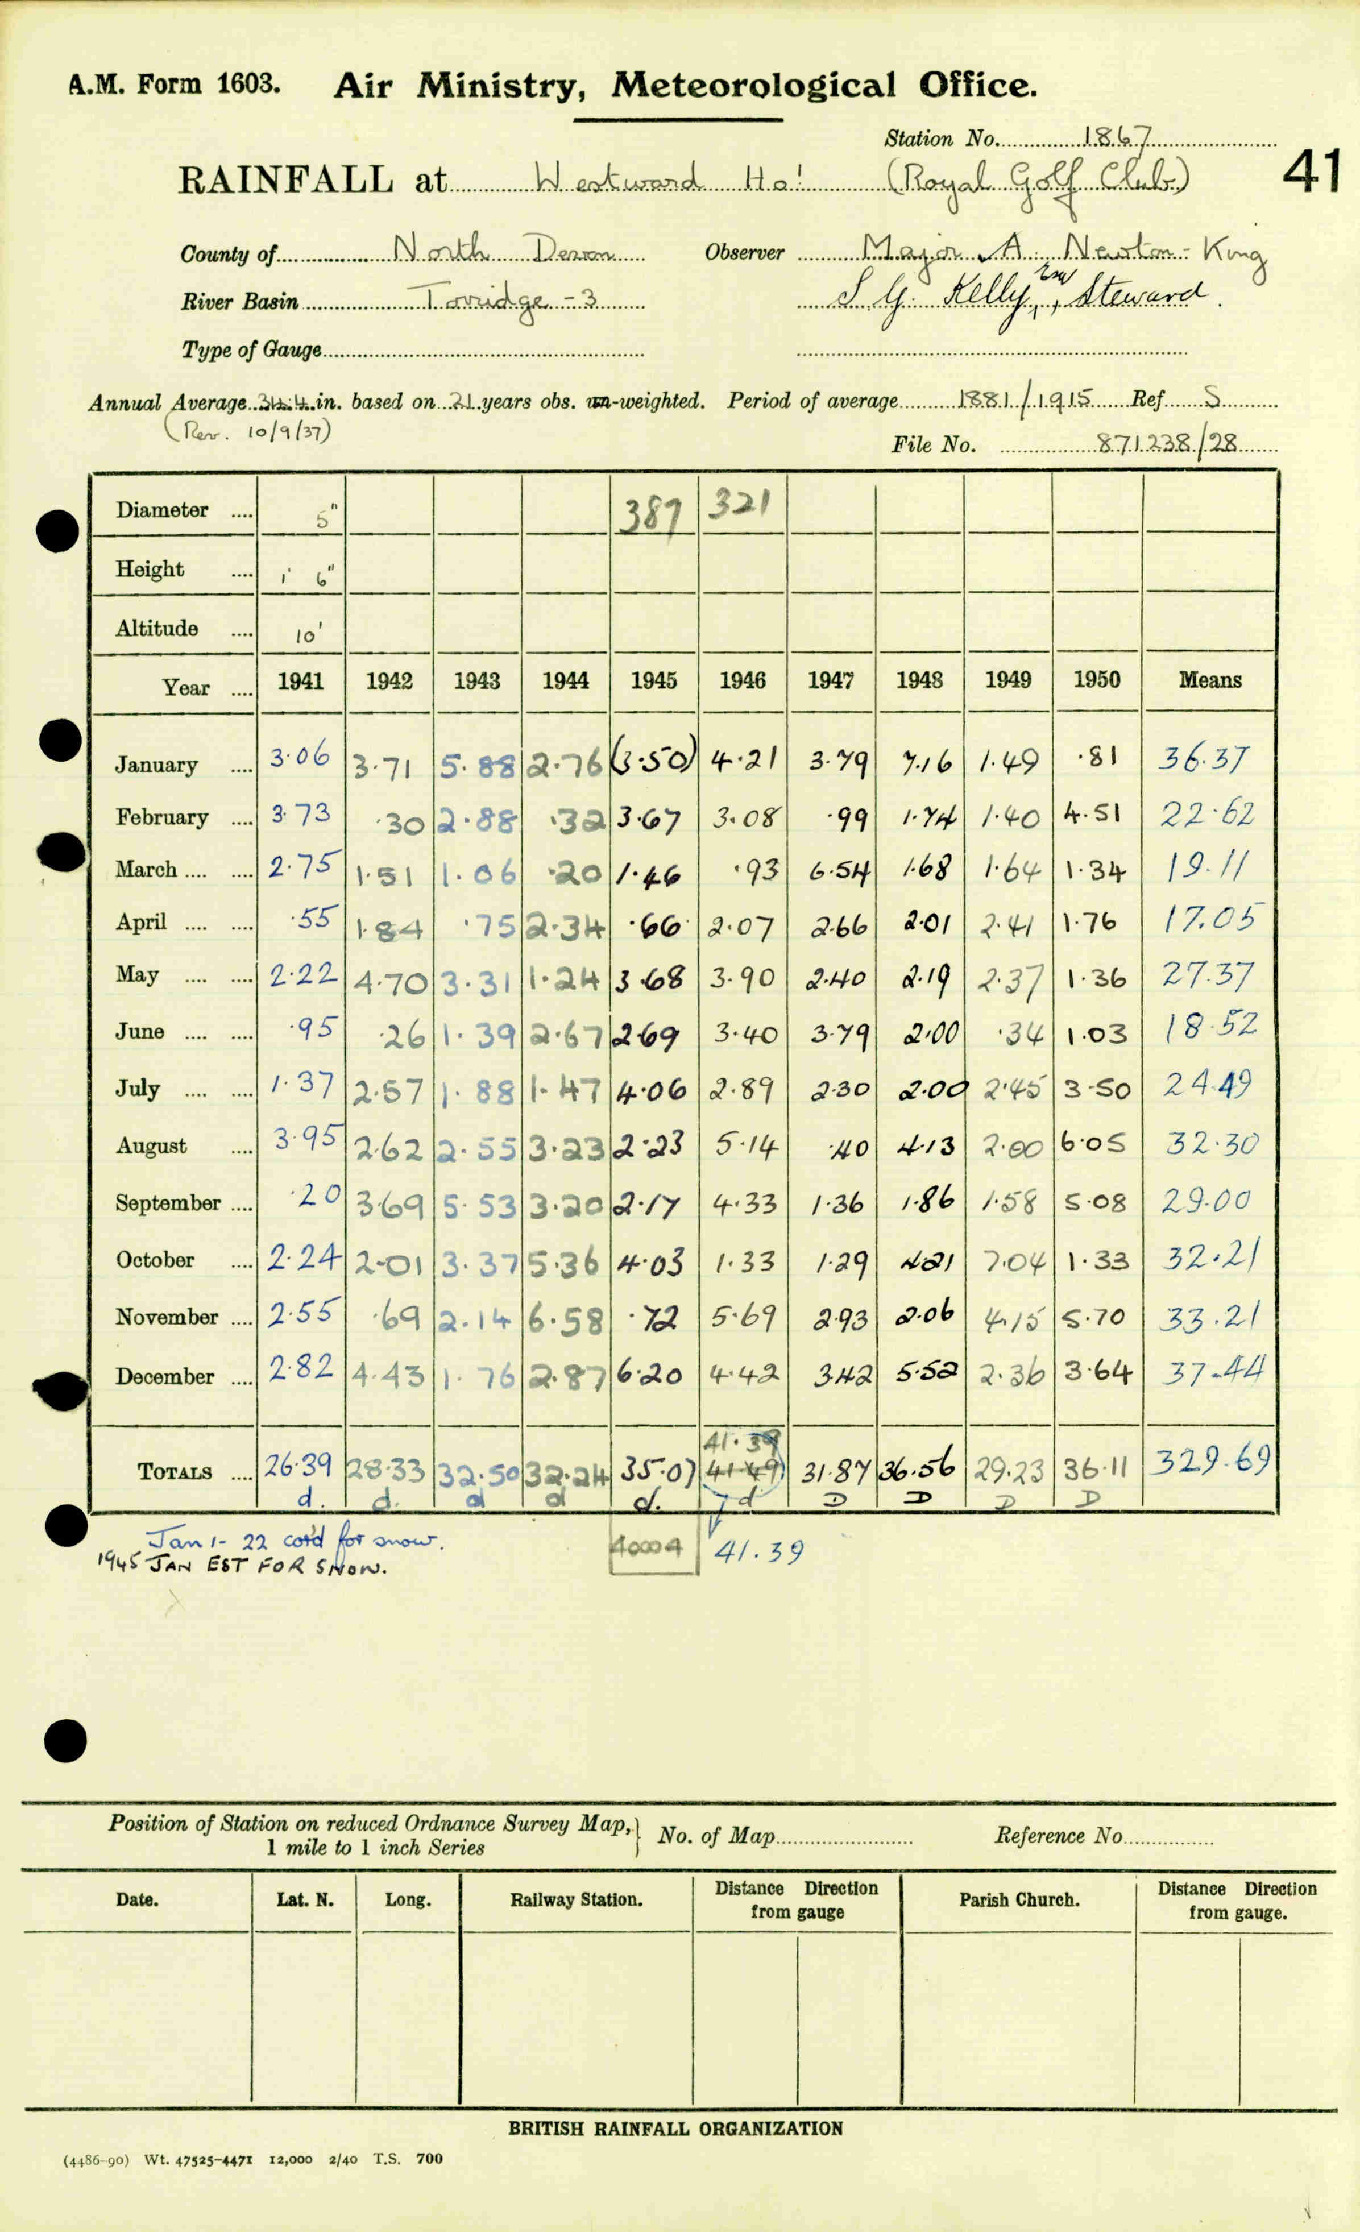 A.M. Form 1603. Air Ministry, Meteorological Office.
Station No. 1867
RAINFALL at Westward Ho! (Royal Golf Club) 41
County of North Devon Observer Major A. Newton-King
River Basin Torridge - 3 S. G. Kelly, Steward.
Type of Gauge
Annual Average 34.4 in. based on 21 years obs. un-weighted. Period of average 1881/1915 Ref S
(Rev. 10/9/37)
File No. 871238/28
Diameter .... 5" 387 321
Height .... 1' 6"
Altitude .... 10'
Year .... 1941 1942 1943 1944 1945 1946 1947 1948 1949 1950 Means
January .... 3.06 3.71 5.88 2.76 (3.50) 4.21 3.79 7.16 1.49 .81 36.37
February .... 3.73 .30 2.88 .32 3.67 3.08 .99 1.74 1.40 4.51 22.62
March .... .... 2.75 1.51 1.06 .20 1.46 .93 6.54 1.68 1.64 1.34 19.11
April .... .... .55 1.84 .75 2.34 .66 2.07 2.66 2.01 2.41 1.76 17.05
May .... .... 2.22 4.70 3.31 1.24 3.68 3.90 2.40 2.19 2.37 1.36 27.37
June .... .... .95 .26 1.39 2.67 2.69 3.40 3.79 2.00 .34 1.03 18.52
July .... .... 1.37 2.57 1.88 1.47 4.06 2.89 2.30 2.00 2.45 3.50 24.49
August .... 3.95 2.62 2.55 3.23 2.23 5.14 .40 4.13 2.00 6.05 32.30
September .... .20 3.69 5.53 3.20 2.17 4.33 1.36 1.86 1.58 5.08 29.00
October .... 2.24 2.01 3.37 5.36 4.03 1.33 1.29 4.21 7.04 1.33 32.21
November .... 2.55 .69 2.14 6.58 .72 5.69 2.93 2.06 4.15 5.70 33.21
December .... 2.82 4.43 1.76 2.87 6.20 4.42 3.42 5.52 2.36 3.64 37.44
41.39
TOTALS .... 26.39 28.33 32.50 32.24 35.07 41.49 31.87 36.56 29.23 36.11 329.69
d. d. d d d. d D D D D
Jan 1- 22 cor'd for snow. 41.39
1945 JAN EST FOR SNOW.
Position of Station on reduced Ordnance Survey Map, } No. of Map Reference No.
1 mile to 1 inch Series
Date. Lat. N. Long. Railway Station. Distance Direction from gauge Parish Church. Distance Direction from gauge.
BRITISH RAINFALL ORGANIZATION
(4486-90) Wt. 47525-4471 12,000 2/40 T.S. 700